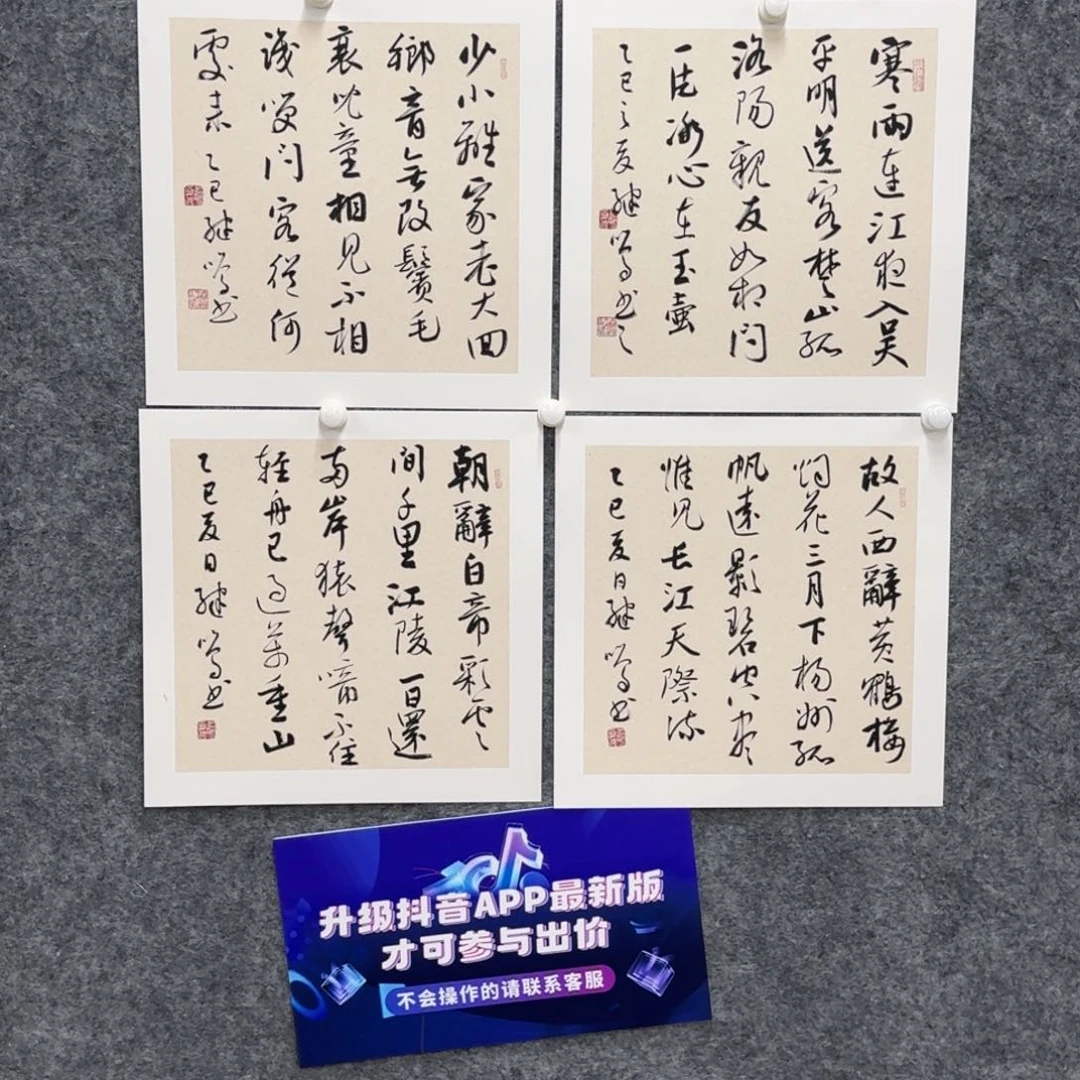 寒雨連江夜入吴
平明送客楚山孤
洛陽親友如相問
一片冰心在玉壺
乙巳之夏继书之
少小離家老大回
鄉音无改鬢毛
衰兒童相見不相
識笑問客從何
處来 乙巳继书
故人西辭黄鶴樓
烟花三月下揚州孤
帆遠影碧空盡
惟見長江天際流
乙巳夏日继书
朝辭白帝彩雲
間千里江陵一日還
兩岸猿聲啼不住
輕舟已過萬重山
乙巳夏日继书
升级抖音APP最新版
才可参与出价
不会操作的请联系客服